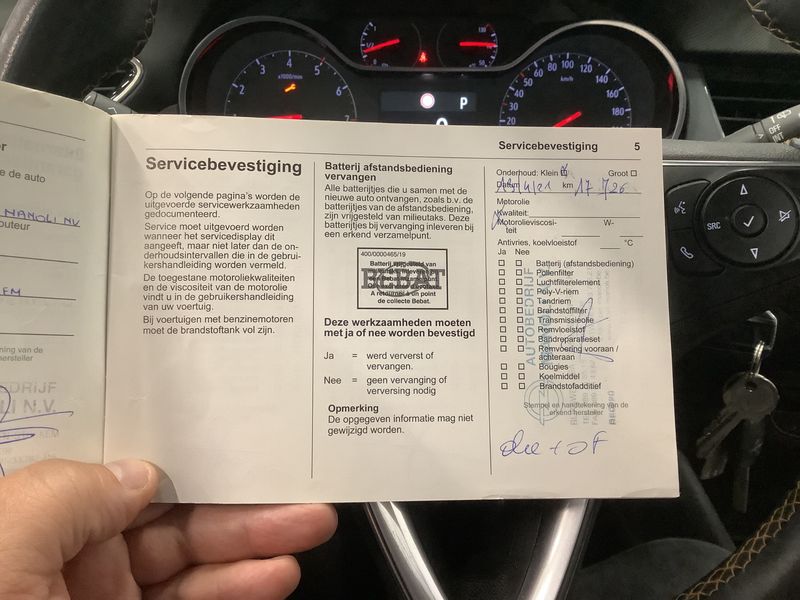 e de auto
NANOLI NV
buteur
ning van de
hersteller
Servicebevestiging
5
Servicebevestiging
Op de volgende pagina's worden de
uitgevoerde servicewerkzaamheden
gedocumenteerd.
Service moet uitgevoerd worden
wanneer het servicedisplay dit
aangeeft, maar niet later dan de on-
derhoudsintervallen die in de gebrui-
kershandleiding worden vermeld.
De toegestane motoroliekwaliteiten
en de viscositeit van de motorolie
vindt u in de gebruikershandleiding
van uw voertuig.
Bij voertuigen met benzinemotoren
moet de brandstoftank vol zijn.
Batterij afstandsbediening
vervangen
Alle batterijtjes die u samen met de
nieuwe auto ontvangen, zoals b.v. de
batterijtjes van de afstandsbediening,
zijn vrijgesteld van milieutaks. Deze
batterijtjes bij vervanging inleveren bij
een erkend verzamelpunt.
400/0000465/19
Batterij vrijgesteld van
BEBAT
A retourner à un point
de collecte Bebat.
Deze werkzaamheden moeten
met ja of nee worden bevestigd
Ja = werd ververst of
vervangen.
Nee = geen vervanging of
verversing nodig
Opmerking
De opgegeven informatie mag niet
gewijzigd worden.
Onderhoud: Klein Groot
Datum 19/4/21 km 17 726
Motorolie
Kwaliteit:
Motorolieviscosi-
teit W-
Antivries, koelvloeistof °C
Ja Nee
Batterij (afstandsbediening)
Pollenfilter
Luchtfilterelement
Poly-V-riem
Tandriem
Brandstoffilter
Transmissieolie
Remvloeistof
Bandreparatieset
Remvoering vooraan /
achteraan
Bougies
Koelmiddel
Brandstofadditief
Stempel en handtekening van de
erkend hersteller
AUTOBEDRIJF
olie + oF
x1000/min
2
3
4
5
6
7
P
km/h
20
40
50
60
80
100
120
140
160
180
SRC
OFF
INT